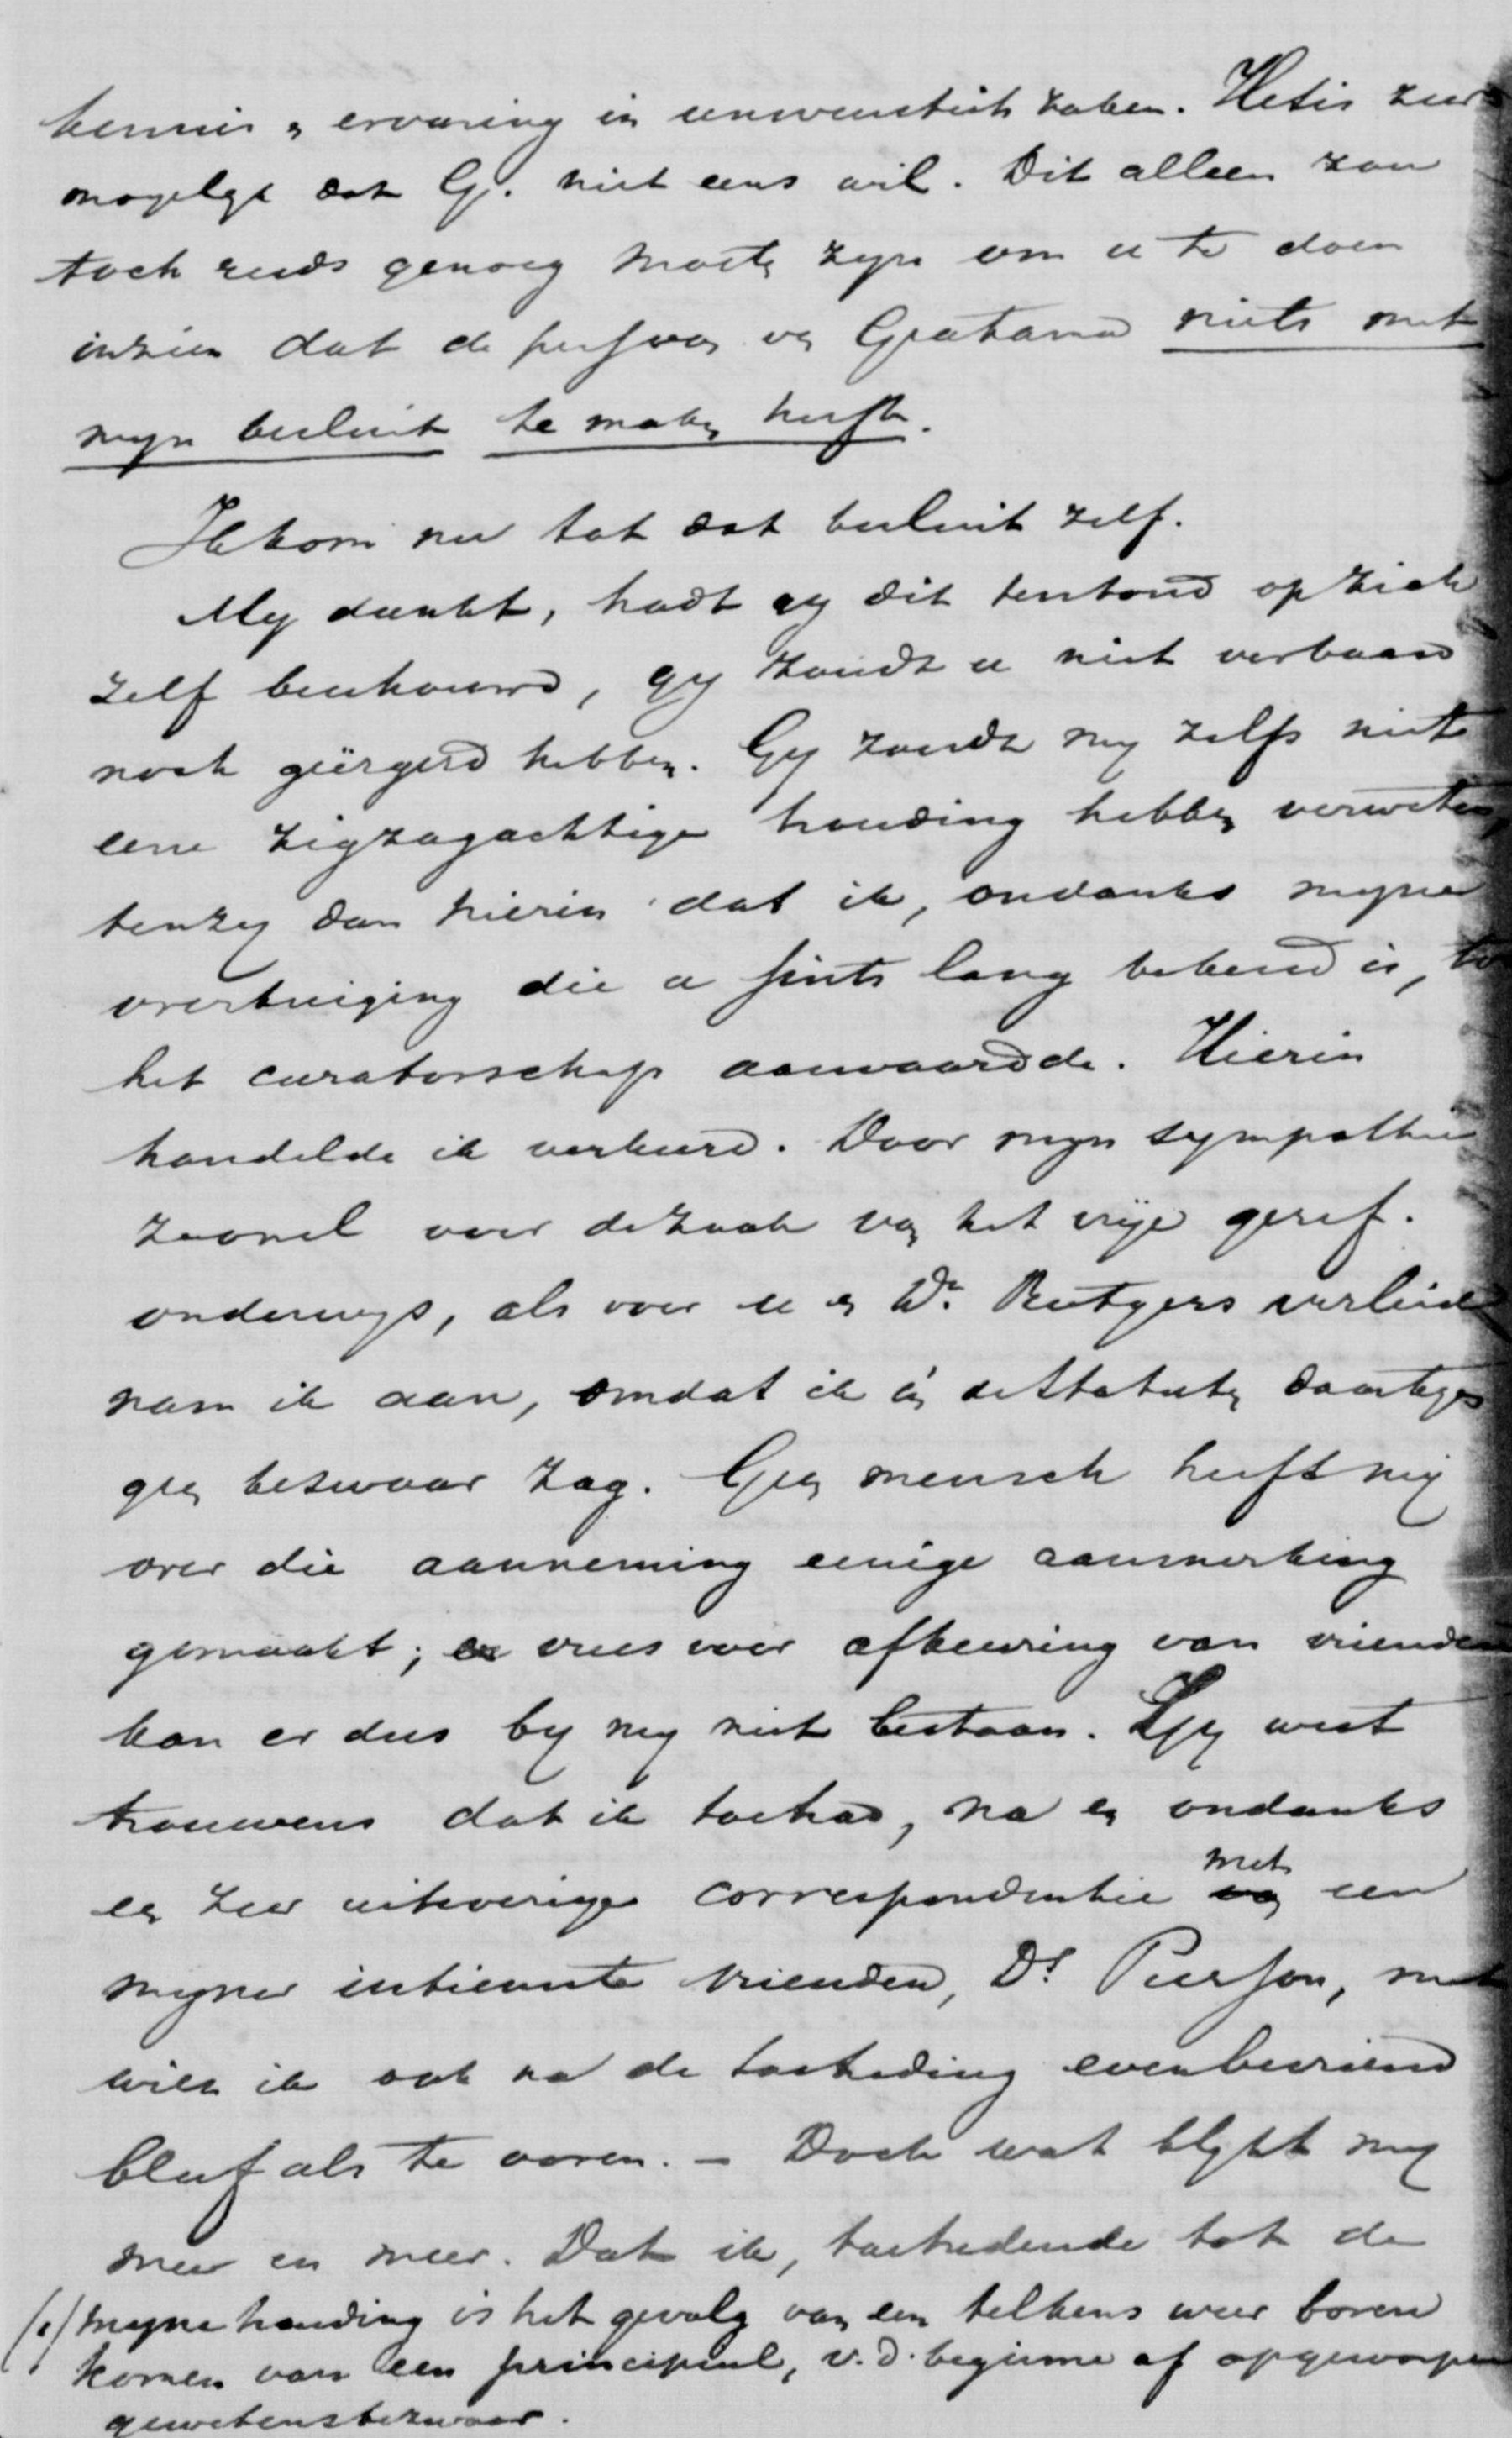 kennis & ervaring in universiteits zaken. Het is zeer
mogelyk dat G. niet eens wil. Dit alleen zou
toch reeds genoeg moeten zyn om u te doen
inzien dat de persoon van Gratama niets met
myn besluit te maken heeft.
Ik kom nu tot dat besluit zelf.
My dunkt, hadt gy dit bestond op zich
zelf beschouwd, gy zoudt u niet verbaasd
noch geërgerd hebben. Gy zoudt my zelfs niet
eene zigzagachtige houding hebben verweten
tenzy dan hierin dat ik, ondanks myne
overtuiging die u sints lang bekend is,
het curatorschap aanvaardde. Hierin
handelde ik verkeerd. Door myn sympathie
zoowel voor de zaak van het vrije geref.
onderwys, als voor u en Dr. Rutgers verleid
nam ik aan, omdat ik in de Statuten daartegen
geen bezwaar zag. Geen mensch heeft my
over die aanneming eenige aanmerking
gemaakt; vrees voor afkeuring van vrienden
kan er dus by my niet bestaan. Gy weet
trouwens dat ik toetrad, na en ondanks
een zeer uitvoerige correspondentie met een
myner intiemste vrienden, Dr Pierson, met
wien ik ook na de toetreding even bevriend
bleef als te voren. – Doch wat blykt my
meer en meer. Dat ik, toetredende tot de
(1) myne houding is het gevolg van een telkens weer boven
komen van een principieel, v.d. beginne af opgeworpen
gewetensbezwaar.